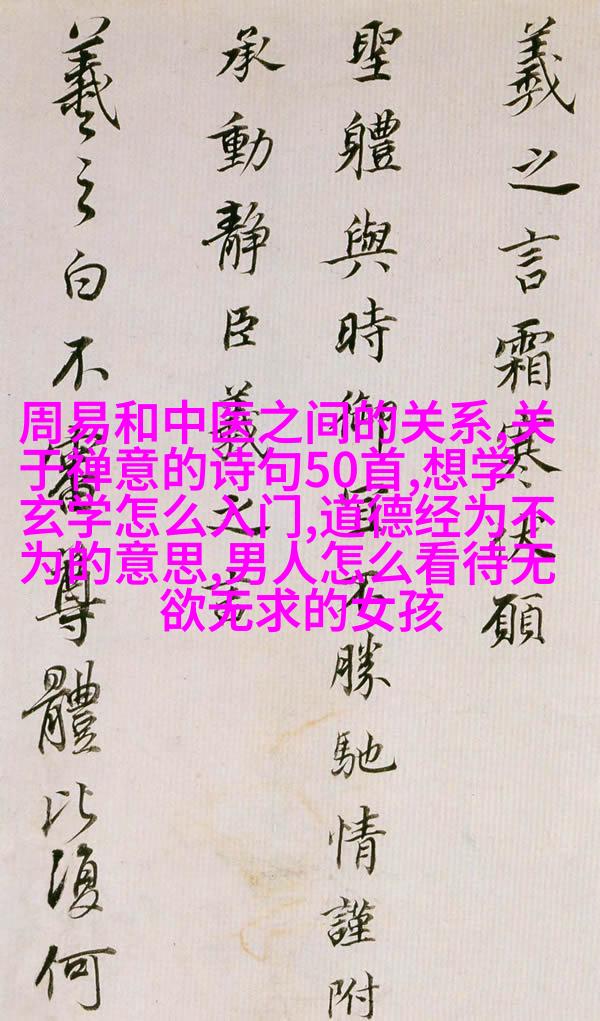 羲之言霜寒伏願
聖體與時御宜不勝馳情謹附
承動靜臣羲之言
羲之白不審尊體比復何
周易和中医之间的关系,关
于禅意的诗句50首,想学
玄学怎么入门,道德经为不
为的意思,男人怎么看待无
欲无求的女孩